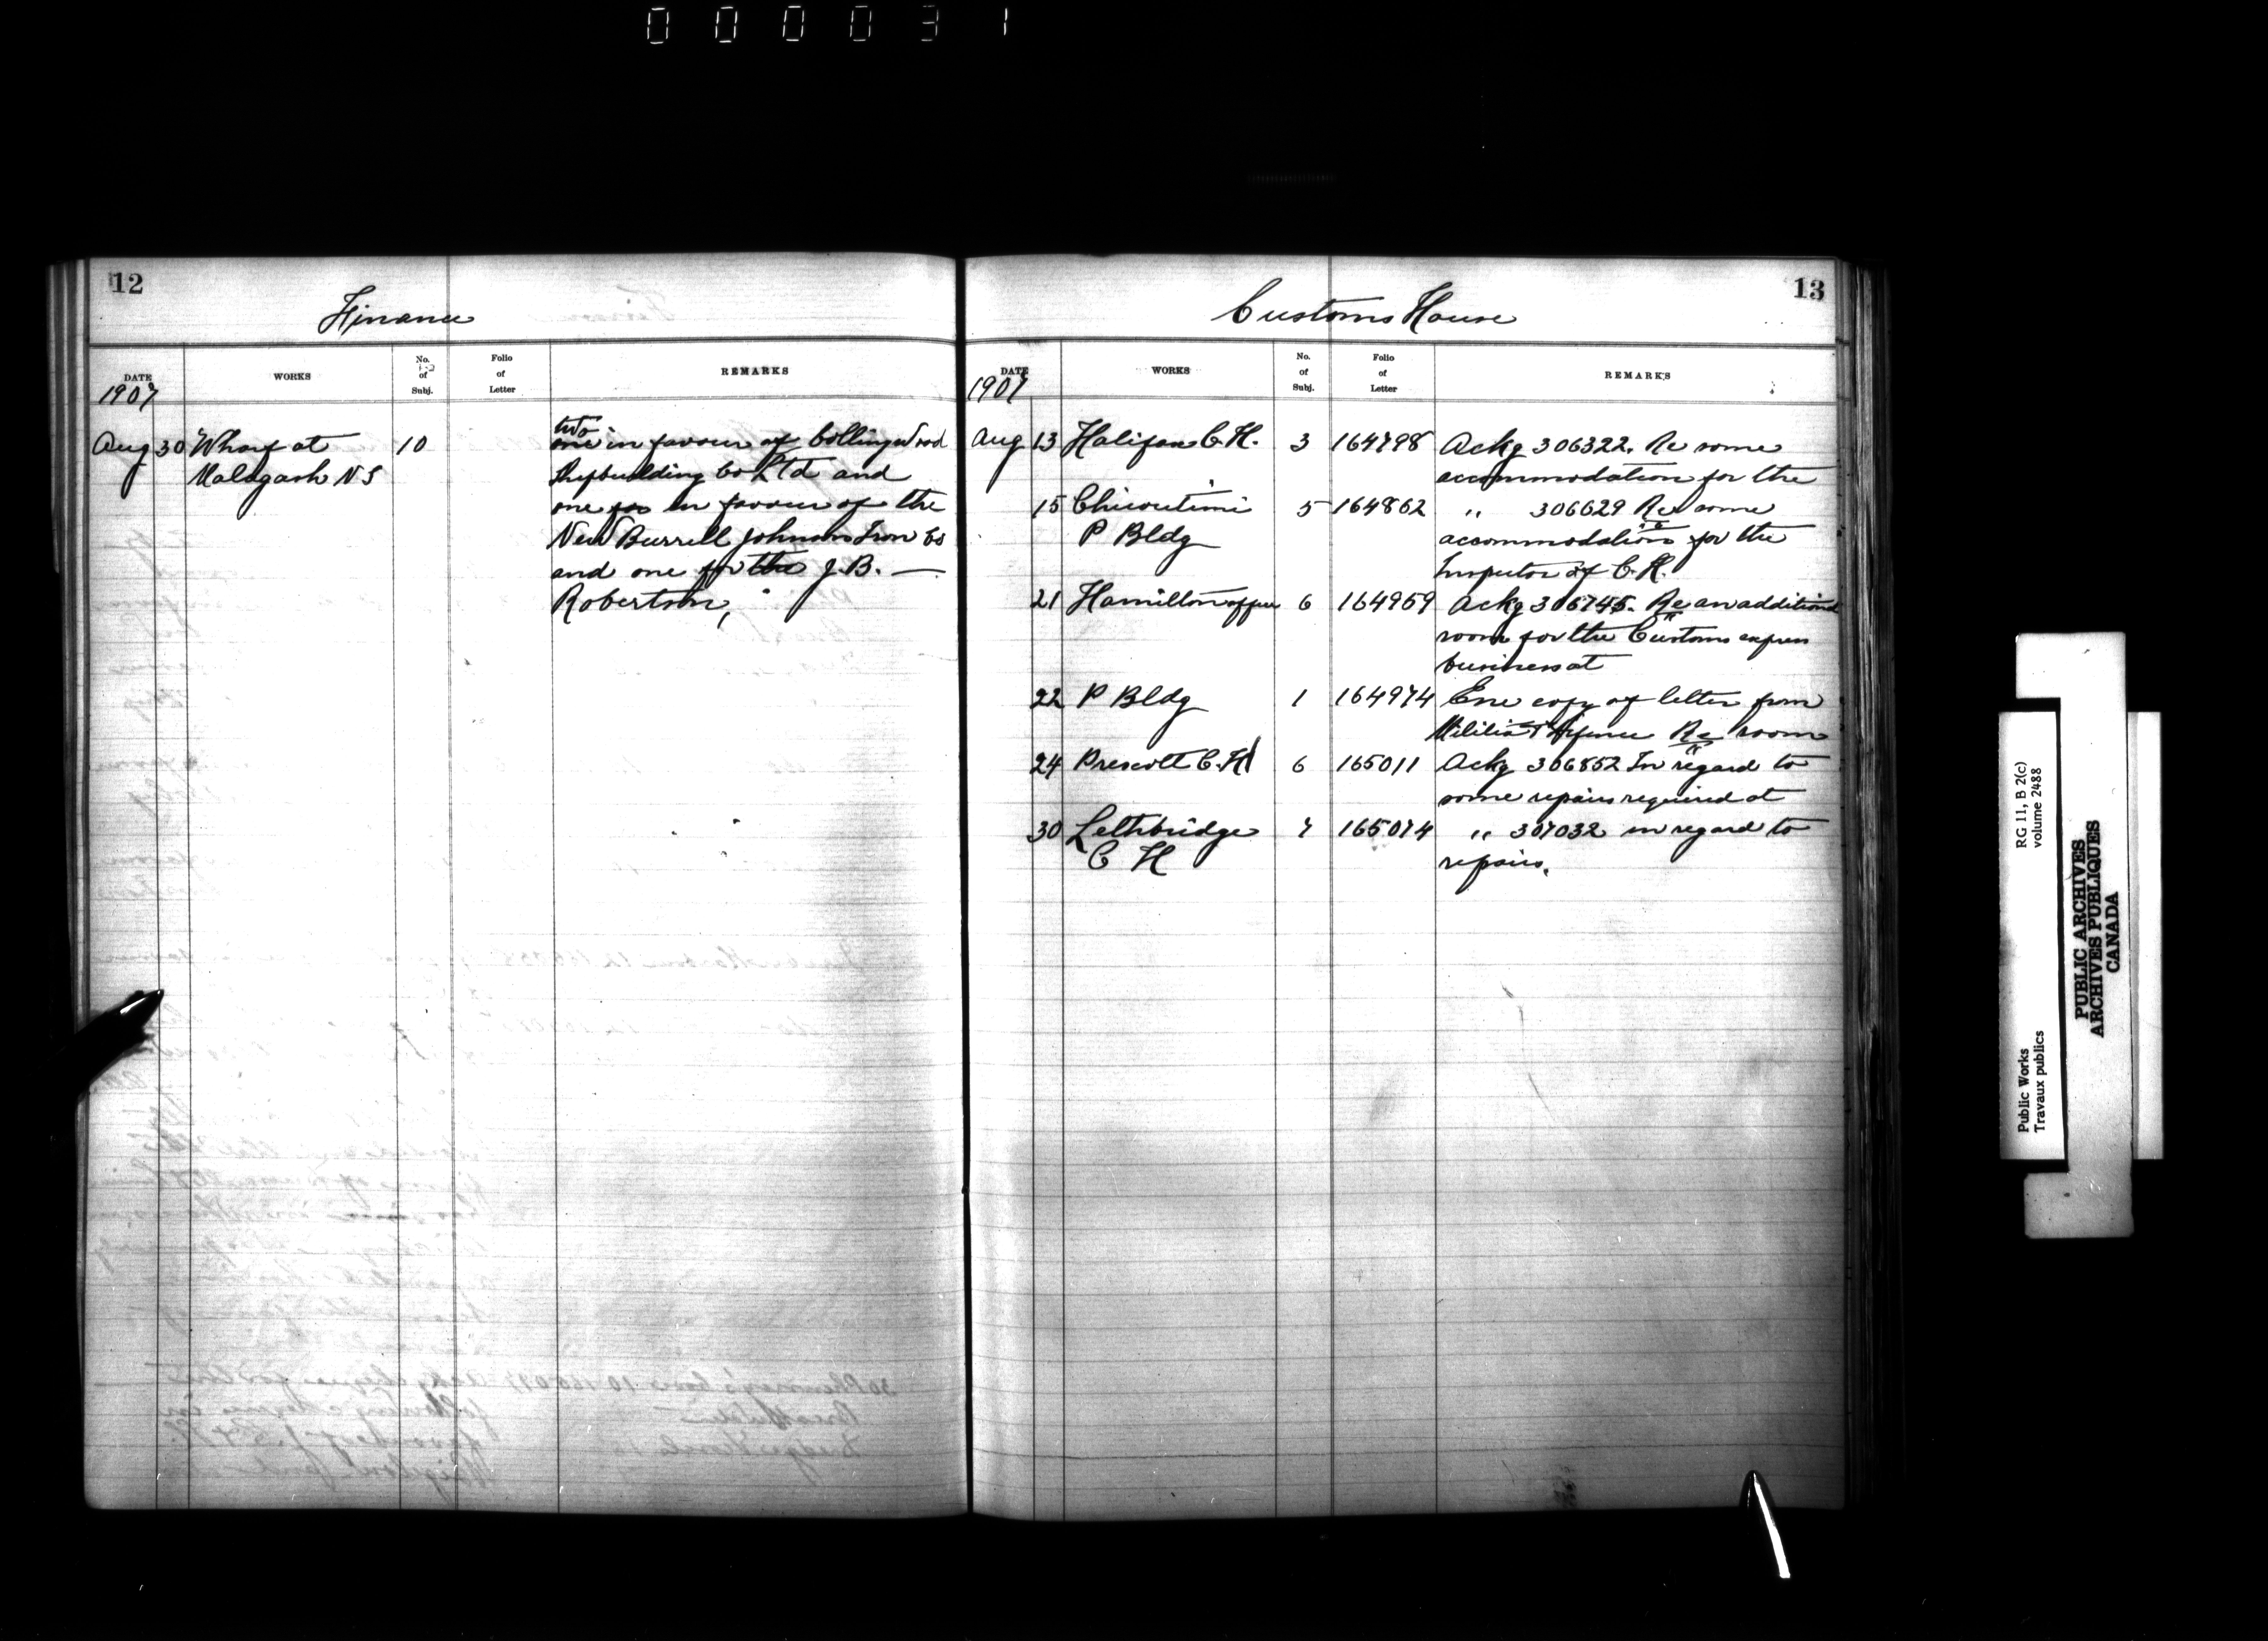 000031
12
Finance
DATE
1907
WORKS
No.
of
Subj.
Folio
of
Letter
REMARKS
Aug 30 Wharf at 10 two
one in favour of Collingwood
Malagash N S Shipbuilding Co Ltd and
one for in favour of the
New Burrell Johnson Iron Co
and one for the J.B. —
Robertson,
13
Customs House
DATE
1907
WORKS
No.
of
Subj.
Folio
of
Letter
REMARKS
Aug 13 Halifax C.H. 3 164798 Ackg 306322. Re some
accommodation for the
15 Chicoutimi 5 164862 " 306629 Re some
P Bldg accommodation for the
Inspector of C.H.
21 Hamilton office 6 164959 Ackg 306745. Re an additional
room for the Customs express
business at
22 P Bldg 1 164974 Enc copy of letter from
Militia & Defence Re room
24 Prescott C.H 6 165011 Ackg 306852 In regard to
some repairs required at
30 Lethbridge 7 165074 " 307032 in regard to
C H repairs.
Public Works
Travaux publics
RG 11, B 2(c)
volume 2488
PUBLIC ARCHIVES
ARCHIVES PUBLIQUES
CANADA